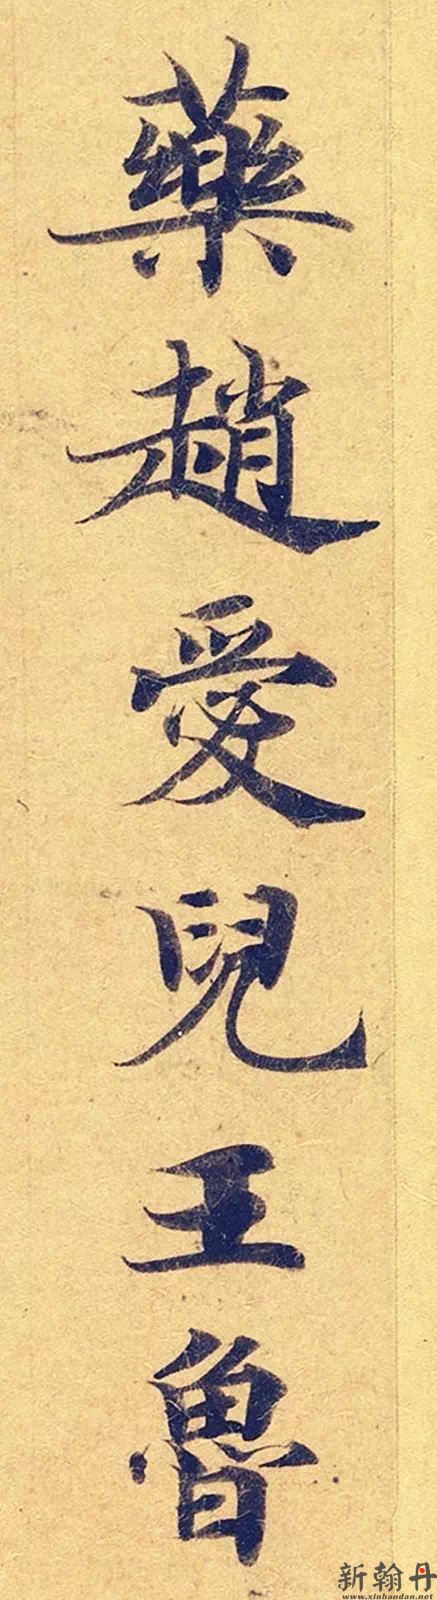 藥趙愛兒王魯
新翰丹
www.xinhandan.net